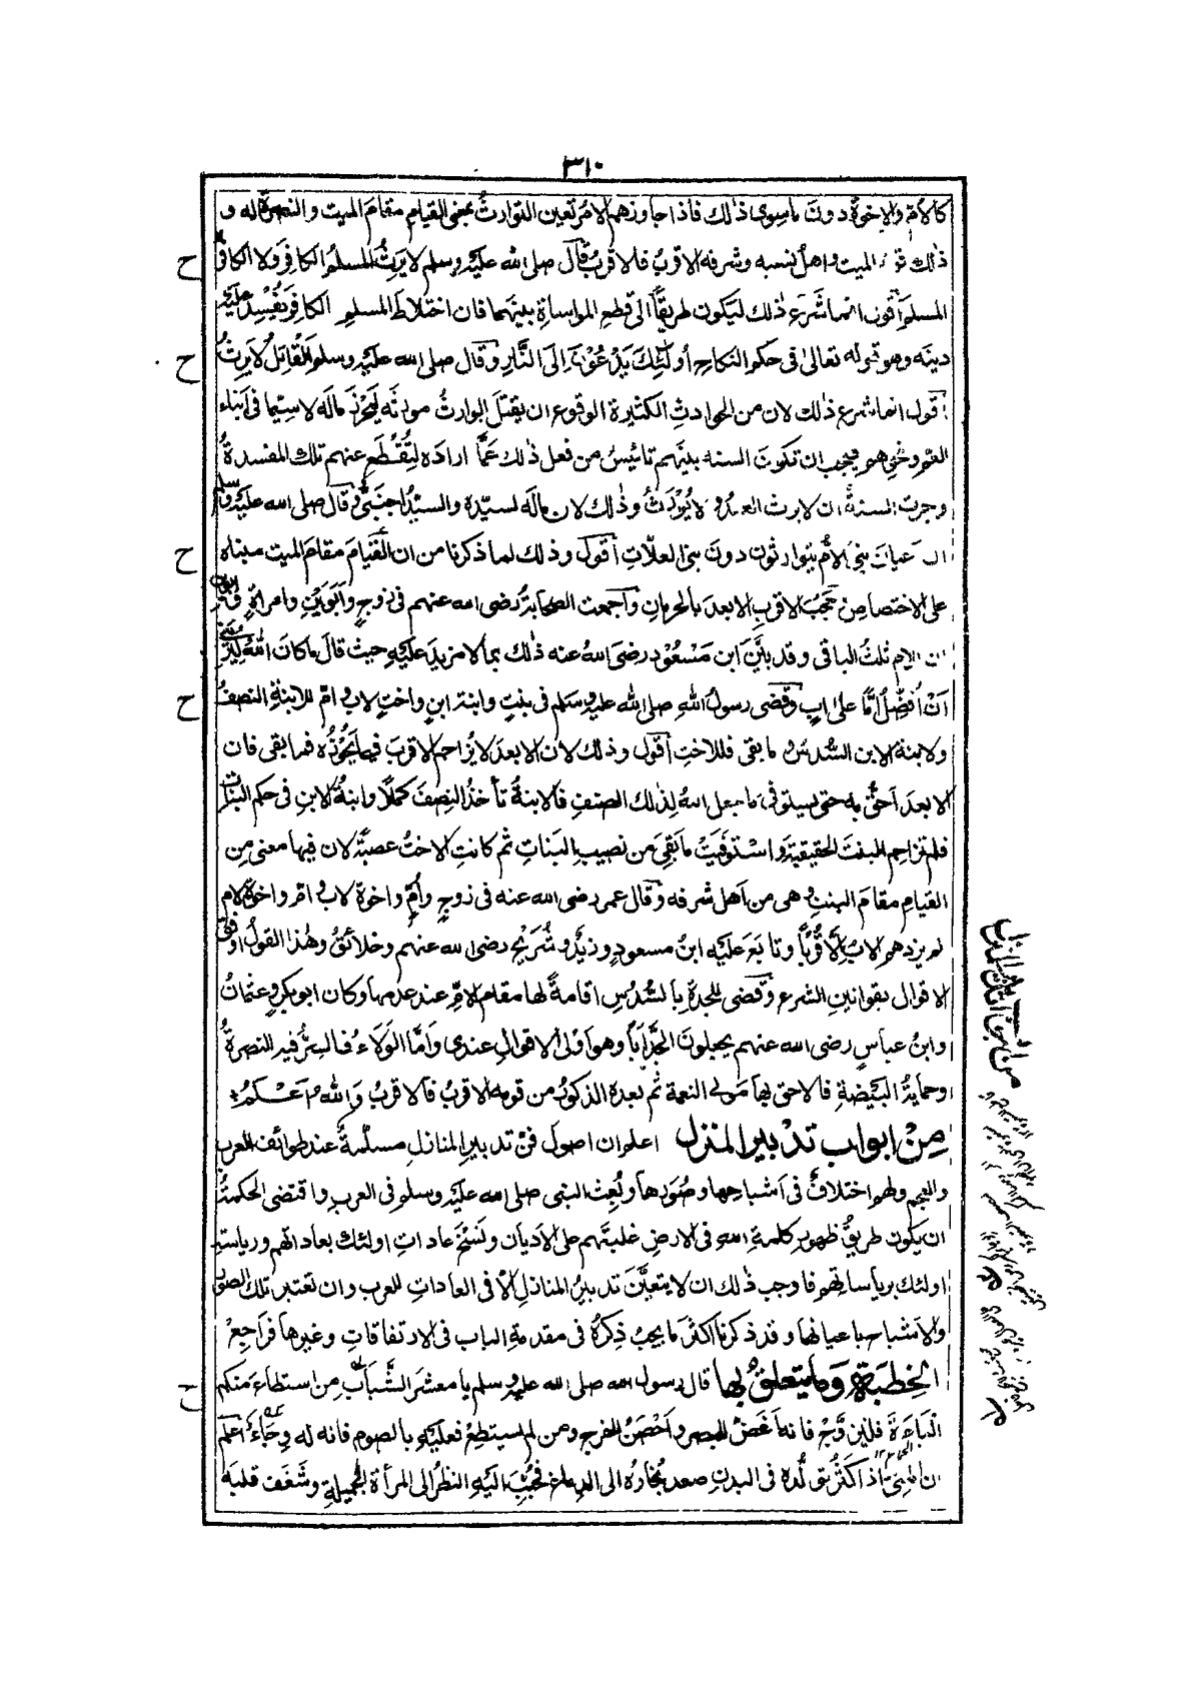 ٣١٠
كالأم والإخوة دون ما سوى ذلك فاذا جاوزهم الامر تعين التوارث بمعنى القيام مقام الميت والنصرة له و
ذلك الميت واهل نسبه وشرفه الاقرب فالاقرب قال صلى الله عليه وسلم لا يرث المسلم الكافر ولا الكافر
المسلم اقول انما شرع ذلك ليكون طريقا الى قطع المواساة بينهما فان اختلاط المسلم الكافر يفسد عليه
دينه وهو قوله تعالى فى حكم النكاح أولئك يدعون إلى النار وقال صلى الله عليه وسلم القاتل لا يرث
اقول انما شرع ذلك لان من الحوادث الكثيرة الوقوع ان يقتل الوارث مورثه ليحرز ماله لا سيما فى ابناء
العم ونحوهم فيجب ان تكون السنة بينهم تائيس من فعل ذلك عما اراده لتقطع عنهم تلك المفسدة
وجرت السنة ان لا يرث العبد ولا يورث وذلك لان ماله لسيده والسيد اجنبى وقال صلى الله عليه وسلم
اعيان بنى الأم يتوارثون دون بنى العلات اقول وذلك لما ذكرنا من ان القيام مقام الميت مبناه
على الاختصاص حجب الاقرب الابعد بالحرمان واجمعت الصحابة رضى الله عنهم فى زوج وأبوين وامرأة وأبوين
ان للام ثلث الباقى وقد بين ابن مسعود رضى الله عنه ذلك بما لا مزيد عليه حيث قال ما كان الله ليرينى
أن أفضل أما على اب وقضى رسول الله صلى الله عليه وسلم فى بنت وابنة ابن واخت لاب وام للابنة النصف
ولابنة الابن السدس وما بقى فللاخت اقول وذلك لان الابعد لا يزاحم الاقرب فيما يحوزه فما بقى فان
الابعد احق به حتى يستوفى ما جعل الله لذلك الصنف فالابنة تأخذ النصف كملا وابنة الابن فى حكم البنات
فلم تزاحم البنت الحقيقية واستوفيت ما بقى من نصيب البنات ثم كانت الاخت عصبة لان فيها معنى من
القيام مقام البنت وهى من اهل شرفه وقال عمر رضى الله عنه فى زوج وأم واخوة لاب وام واخوة لام
لم يزدهم الاب الا قربا وتابع عليه ابن مسعود وزيد وشريح رضى الله عنهم وخلائق وهذا القول اوفق
الاقوال بقوانين الشرع وقضى للجدة بالسدس اقامة لها مقام الام عند عدمها وكان ابو بكر وعثمان
وابن عباس رضى الله عنهم يجعلون الجد أبا وهو اولى الاقوال عندى وأما الولاء فالسر فيه النصرة
وحماية البيضة فالاحق بها مولى النعمة ثم بعده الذكور من قومه الاقرب فالاقرب والله اعلم
من ابواب تدبير المنزل اعلم ان اصول فن تدبير المنازل مسلمة عند طوائف العرب
والعجم ولهم اختلاف فى اشباحها وصورها وبعث النبى صلى الله عليه وسلم فى العرب واقتضى الحكمة
ان يكون طريق ظهور كلمة الله فى الارض غلبتهم على الاديان ونسخ عادات اولئك بعاداتهم ورياسة
اولئك برياساتهم فاوجب ذلك ان لا يتعين تدبير المنازل الا فى العادات للعرب وان تعتبر تلك الصور
والاشباح باعيانها وقد ذكرنا اكثر ما يجب ذكره فى مقدمة الباب فى الارتفاقات وغيرها فراجع
الخطبة وما يتعلق بها قال رسول الله صلى الله عليه وسلم يا معشر الشباب من استطاع منكم
الباءة فليتزوج فانه اغض للبصر واحصن للفرج ومن لم يستطع فعليه بالصوم فانه له وجاء اعلم
ان المنى اذا كثر تولده فى البدن صعد بخاره الى الدماغ فحبب اليه النظر الى المرأة الجميلة وشغف قلبه
ح
ح
ح
ح
ح